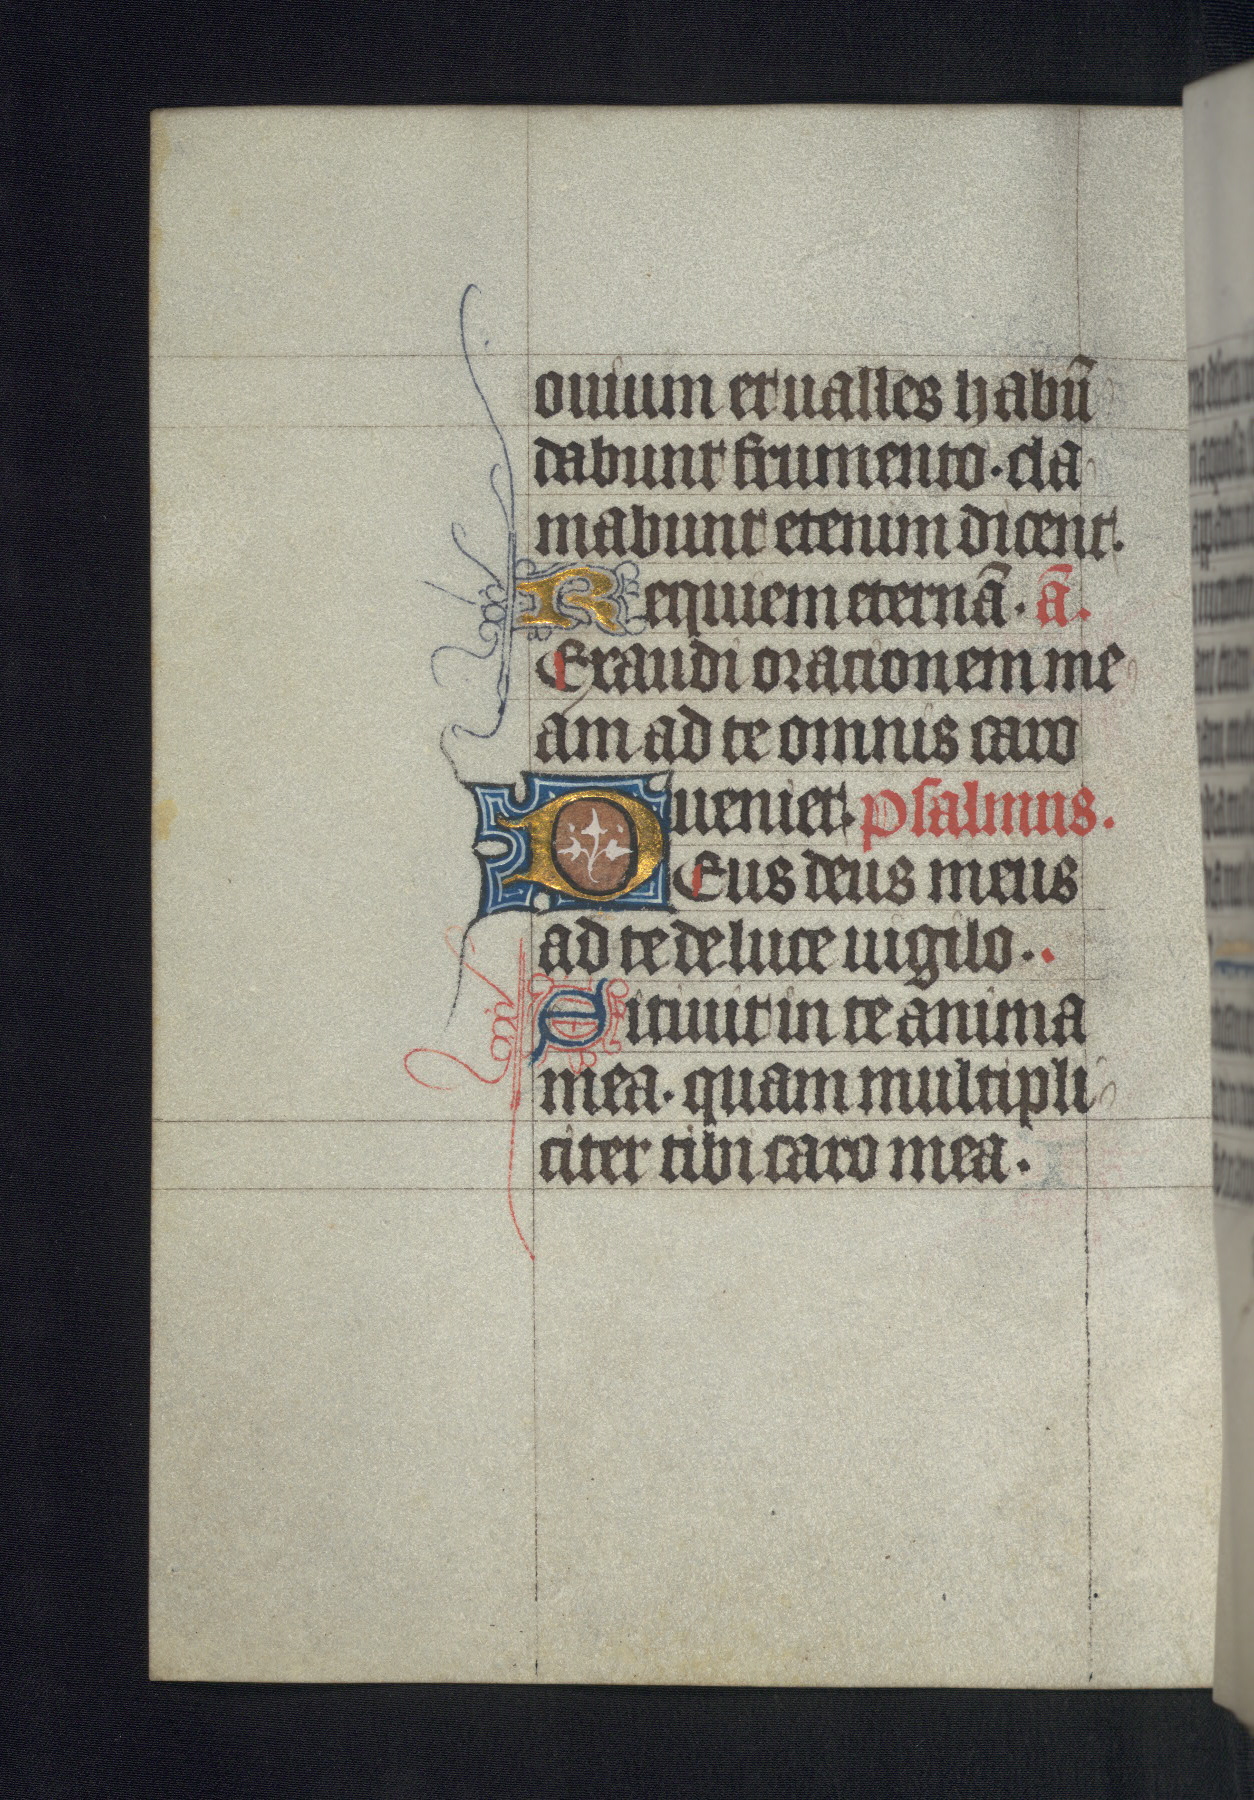 ouium et ualles habū
dabunt frumento · cla
mabunt etenim dicent ·
Requiem eternā · ā.
Exaudi orationem me
am ad te omnis caro
ueniet. psalmus.
DEus deus meus
ad te de luce uigilo ·
Sitiuit in te anima
mea · quam multipli
citer tibi caro mea ·